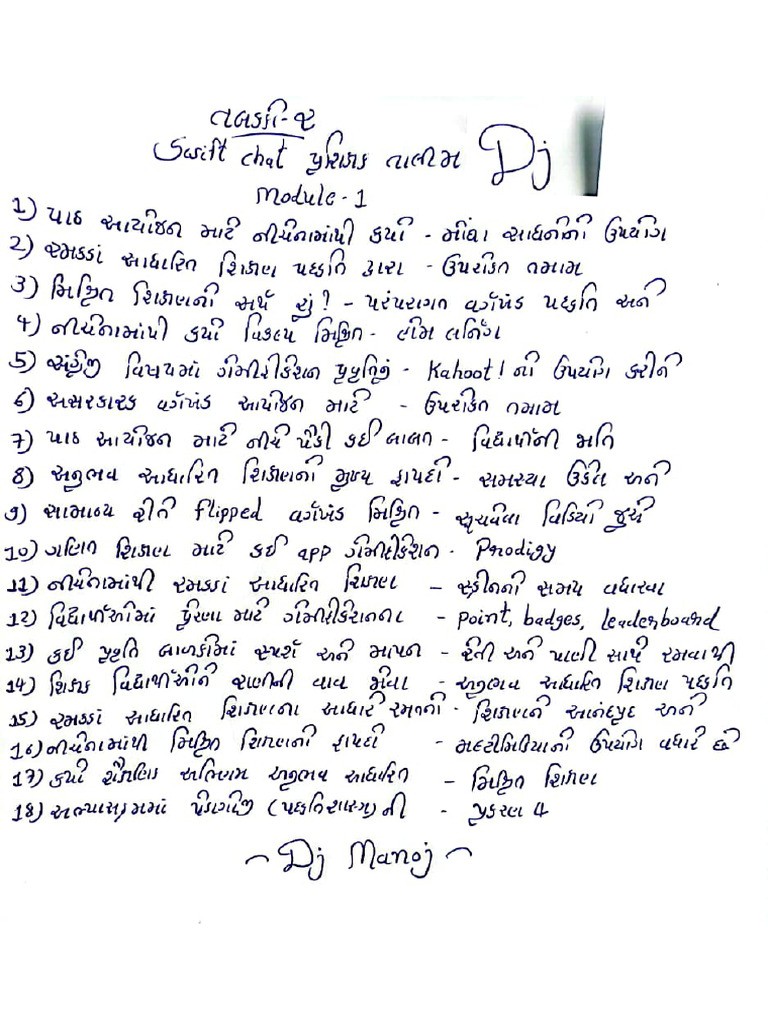 તબક્કો-૨
Swift chat પ્રશિક્ષક તાલીમ Dj
Module-1
1) પાઠ આયોજન માટે નીચેનામાંથી કયો - મોંઘા સાધનોનો ઉપયોગ
2) રમકડાં આધારિત શિક્ષણ પધ્ધતિ દ્વારા - ઉપરોક્ત તમામ
3) મિશ્રિત શિક્ષણનો અર્થ શું? - પરંપરાગત વર્ગખંડ પધ્ધતિ અને
4) નીચેનામાંથી કયો વિકલ્પ મિશ્રિત - લીમ લર્નિંગ
5) અંગ્રેજી વિષયમાં ગેમીફીકેશન પ્રવૃત્તિનું - Kahoot! નો ઉપયોગ કરીને
6) અસરકારક વર્ગખંડ આયોજન માટે - ઉપરોક્ત તમામ
7) પાઠ આયોજન માટે નીચે પૈકી કઈ બાબત - વિદ્યાર્થીની મતિ
8) અનુભવ આધારિત શિક્ષણનો મુખ્ય ફાયદો - સમસ્યા ઉકેલ અને
9) સામાન્ય રીતે flipped વર્ગખંડ મિશ્રિત - સૂચવેલા વિડિયો જુએ
10) ગણિત શિક્ષણ માટે કઈ app ગેમીફીકેશન - Prodigy
11) નીચેનામાંથી રમકડાં આધારિત શિક્ષણ - સ્ક્રીનનો સમય વધારવા
12) વિદ્યાર્થીઓમાં પ્રેરણા માટે ગેમીફીકેશનના - Point, badges, leaderboard
13) કઈ પ્રવૃતિ બાળકોમાં સ્પર્શ અને માપન - રેતી અને પાણી સાથે રમવાથી
14) શિક્ષક વિદ્યાર્થીઓને રાણીની વાવ જેવા - અનુભવ આધારિત શિક્ષણ પધ્ધતિ
15) રમકડાં આધારિત શિક્ષણના આધારે રમતનો - શિક્ષણને આનંદપ્રદ અને
16) નીચેનામાંથી મિશ્રિત શિક્ષણનો ફાયદો - મલ્ટીમિડિયાનો ઉપયોગ વધારે છે
17) કયો શૈક્ષણિક અભિગમ અનુભવ આધારિત - મિશ્રિત શિક્ષણ
18) અભ્યાસક્રમમાં પેડાગોજી (પધ્ધતિશાસ્ત્ર) ની - પ્રકરણ 4
~ Dj Manoj ~